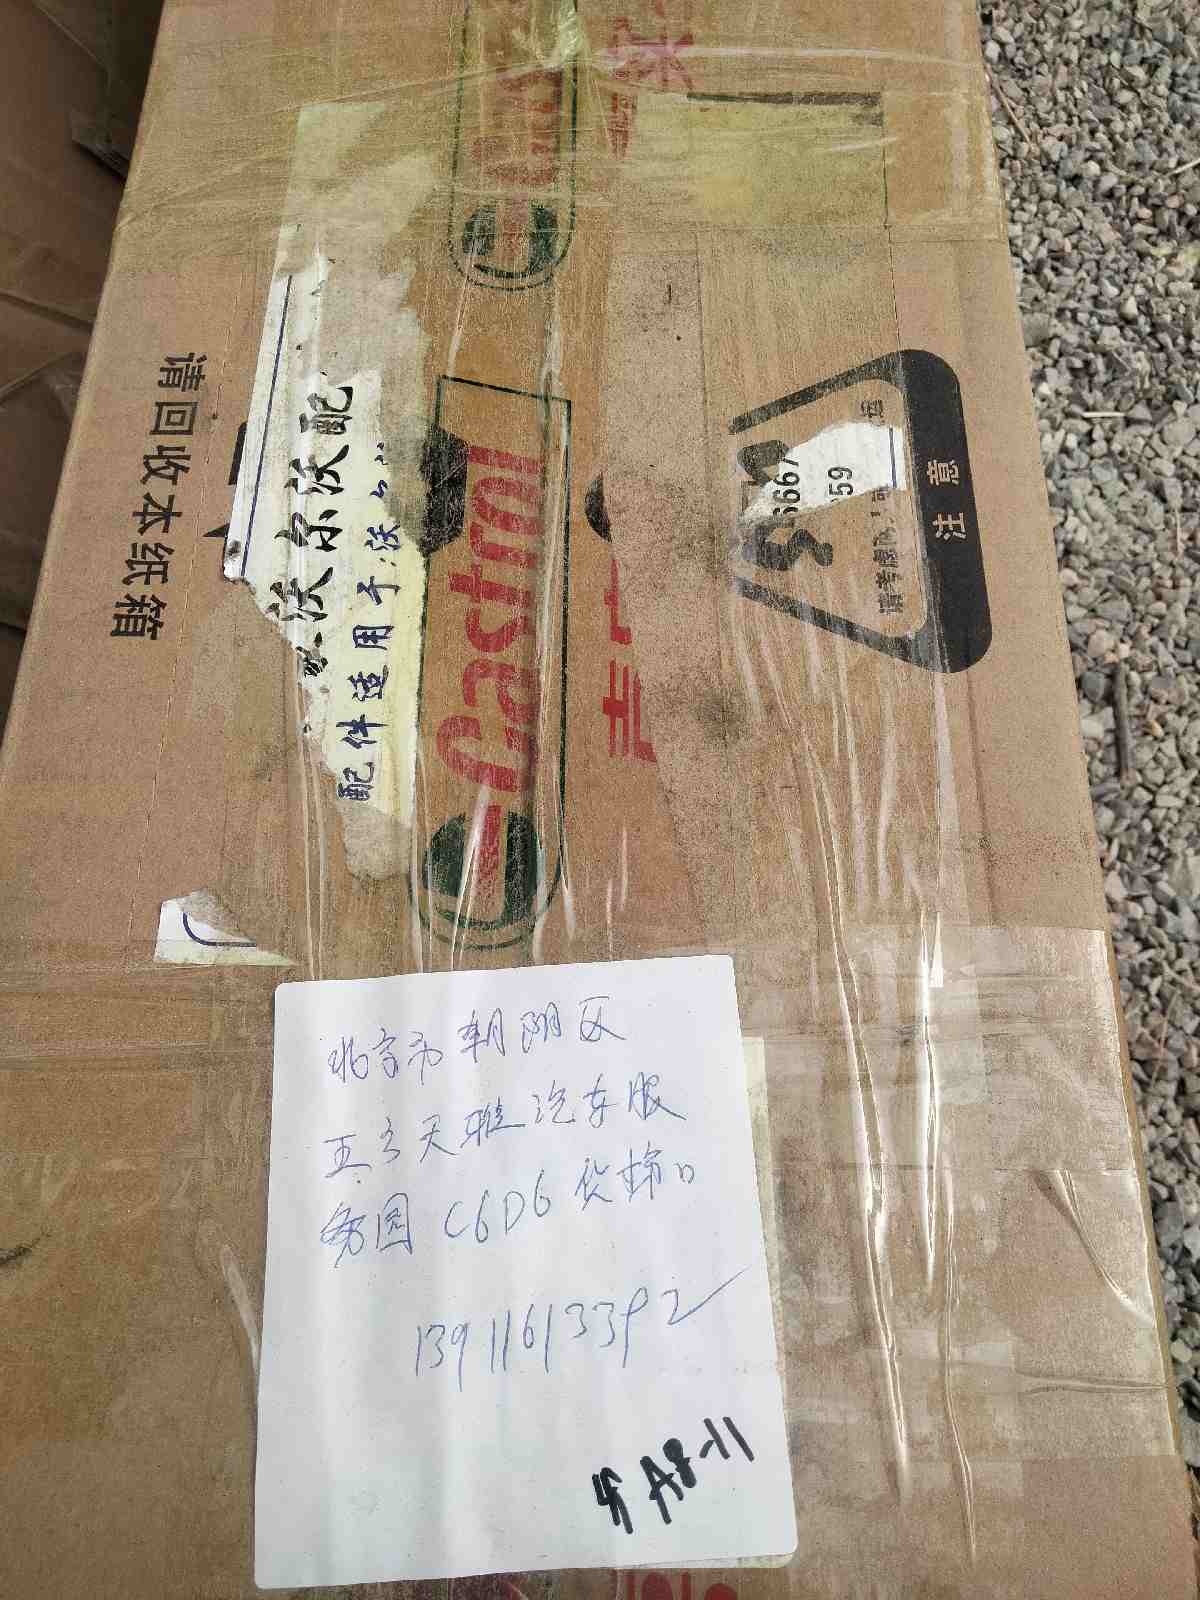 请回收本纸箱
沃尔沃配
配件适用于:沃
Castrol
注意
667
59
北京市朝阳区
五方天雅汽车服
务园C6D6货梯口
13911613392
A8-11